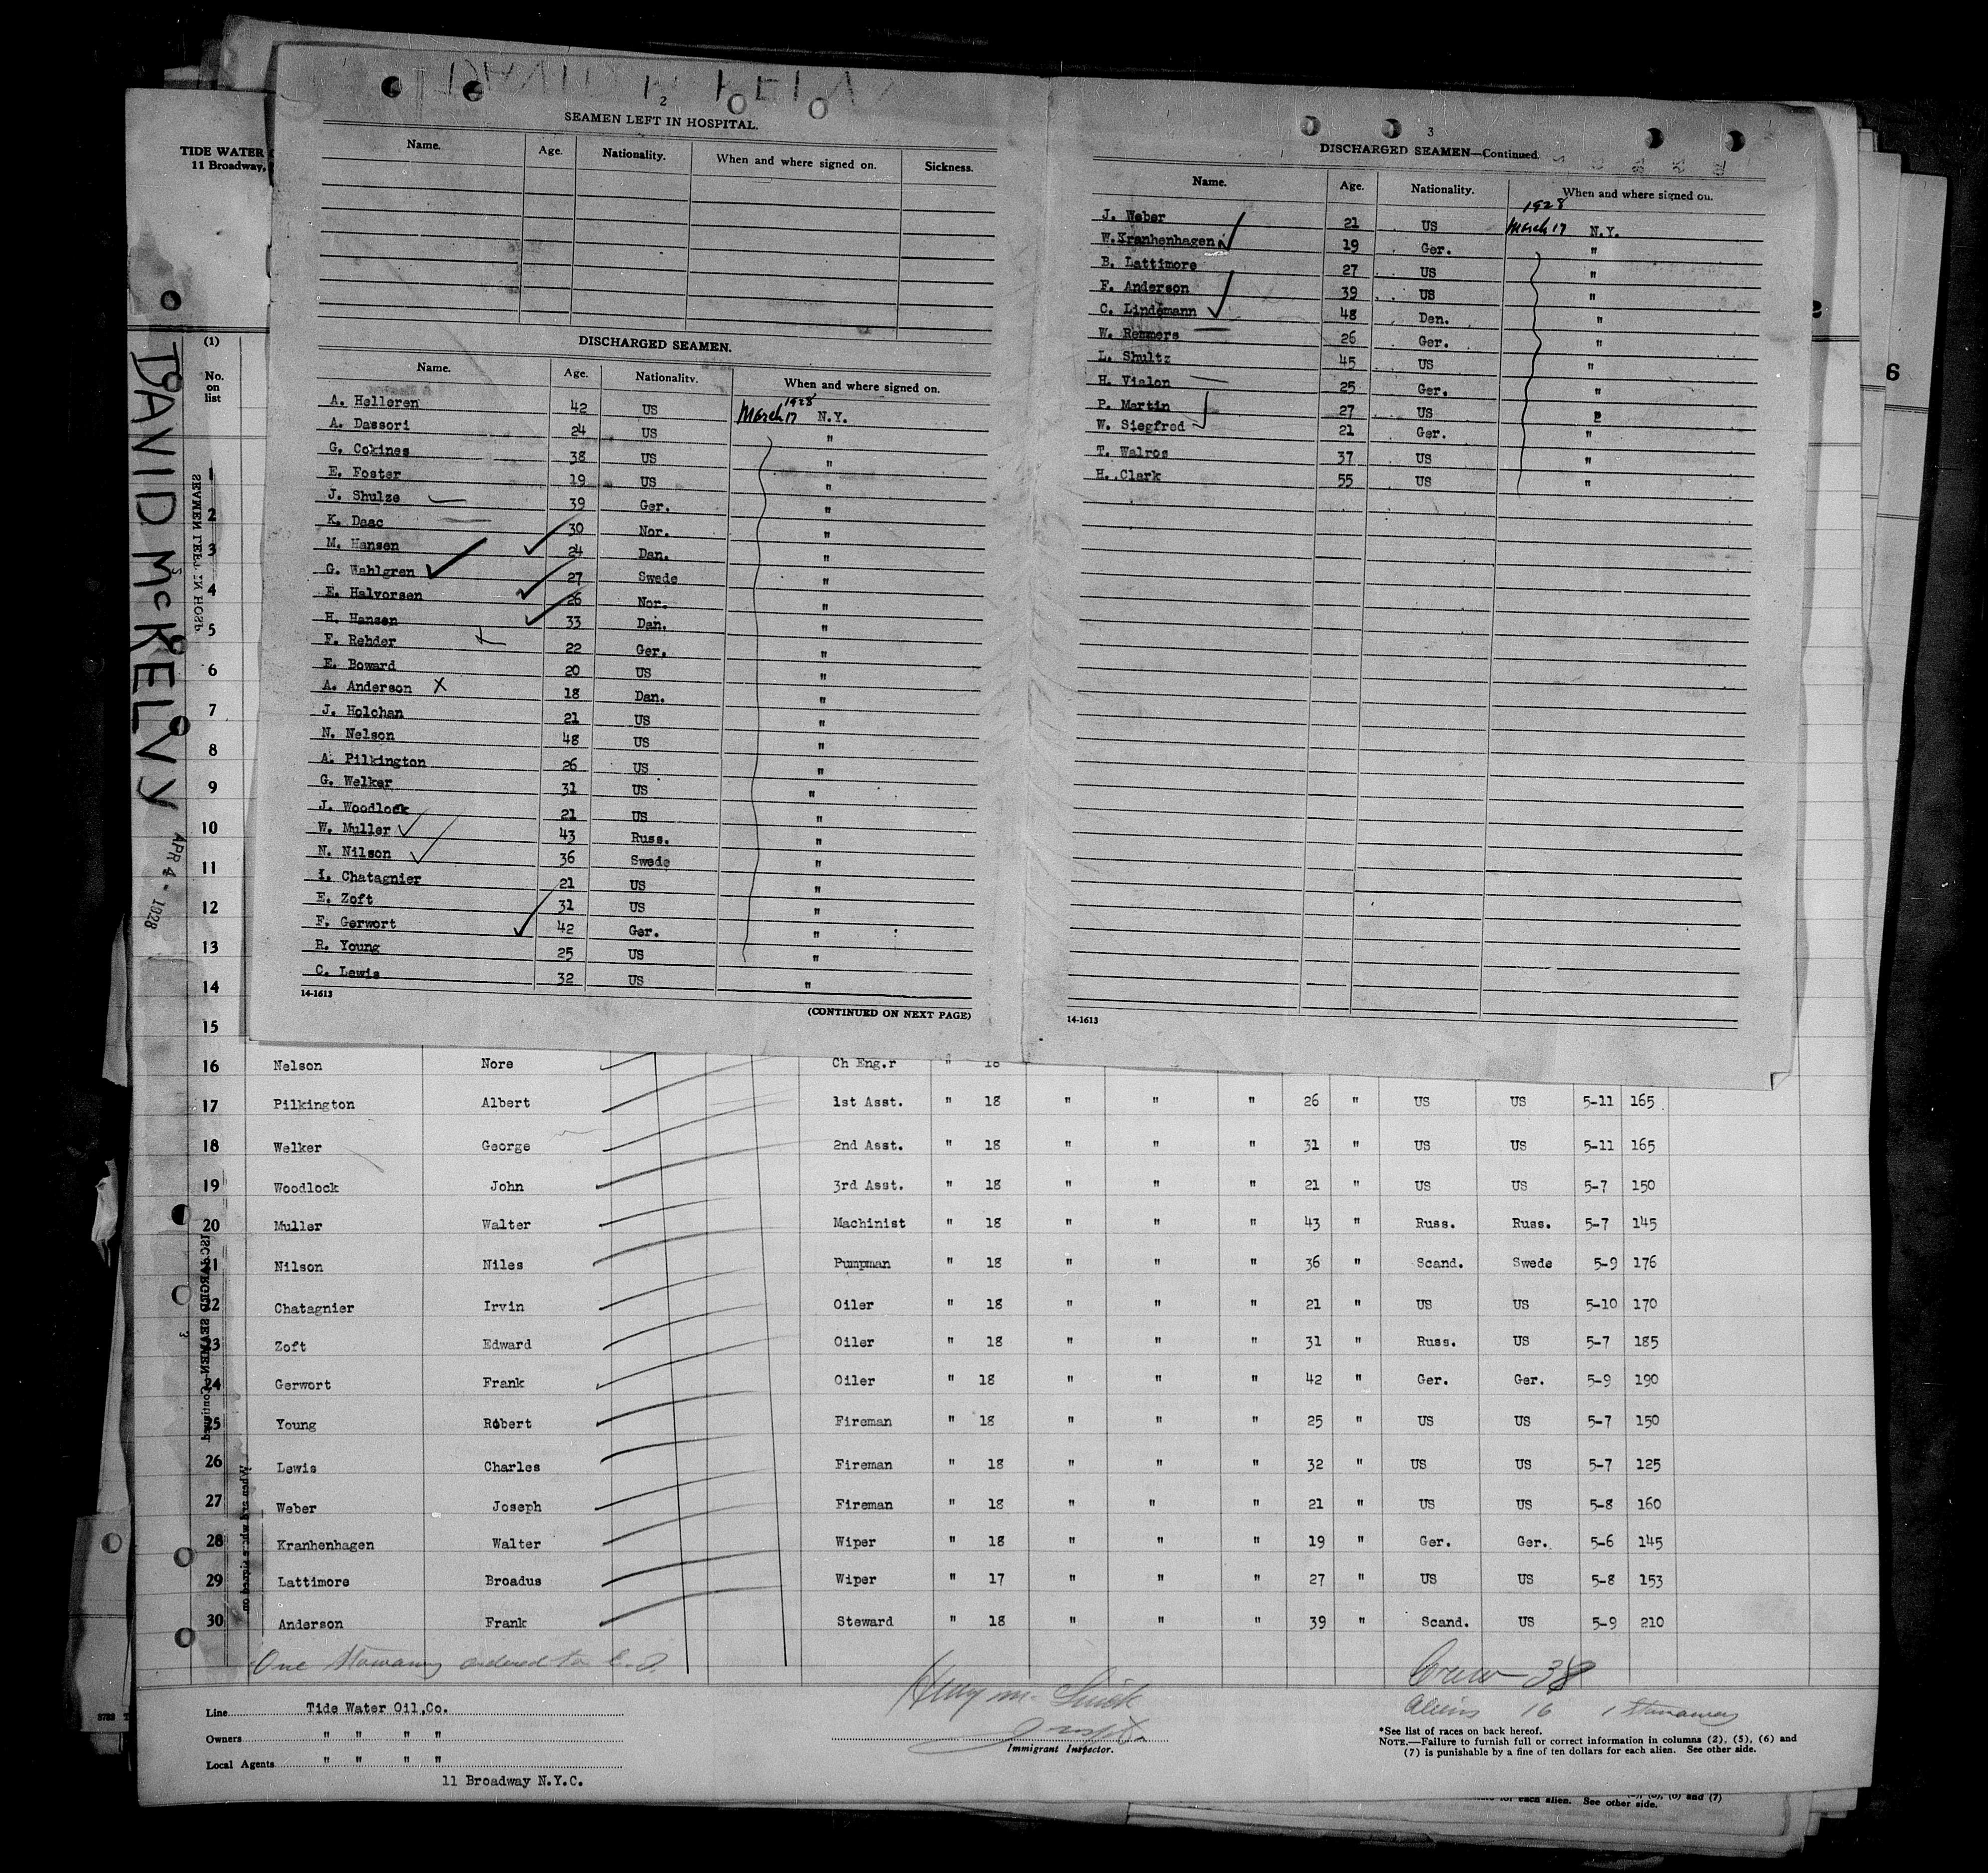 2
SEAMEN LEFT IN HOSPITAL.
Name. Age. Nationality. When and where signed on. Sickness.
DISCHARGED SEAMEN.
Name. Age. Nationality. When and where signed on.
1928
A. Helleren 42 US March 17 N.Y.
A. Dassori 24 US "
G. Cokines 38 US "
E. Foster 19 US "
J. Shulze 39 Ger. "
K. Daac 30 Nor. "
M. Hansen 24 Dan. "
G. Wahlgren 27 Swede "
E. Halvorsen 26 Nor. "
H. Hansen 33 Dan. "
F. Rehder 22 Ger. "
E. Boward 20 US "
A. Anderson X 18 Dan. "
J. Holohan 21 US "
N. Nelson 48 US "
A. Pilkington 26 US "
G. Welker 31 US "
J. Woodlock 21 US "
W. Muller 43 Russ. "
N. Nilson 36 Swede "
I. Chatagnier 21 US "
E. Zoft 31 US "
F. Gerwort 42 Ger. "
R. Young 25 US "
C. Lewis 32 US "
14-1613
(CONTINUED ON NEXT PAGE)
3
DISCHARGED SEAMEN—Continued.
Name. Age. Nationality. When and where signed on.
1928
J. Weber 21 US March 17 N.Y.
W. Kranhenhagen 19 Ger. "
B. Lattimore 27 US "
F. Anderson 39 US "
C. Lindemann 48 Den. "
W. Remmers 26 Ger. "
L. Shultz 45 US "
H. Vialon 25 Ger. "
P. Martin 27 US "
W. Siegfred 21 Ger. "
T. Walros 37 US "
H. Clark 55 US "
14-1613
TIDE WATER
11 Broadway,
DAVID McKELVY
APR 4 - 1928
(1)
No.
on
list
1
2
3
4
5
6
7
8
9
10
11
12
13
14
15
16 Nelson Nore Ch Eng.r " 18
17 Pilkington Albert 1st Asst. " 18 " " " 26 " US US 5-11 165
18 Welker George 2nd Asst. " 18 " " " 31 " US US 5-11 165
19 Woodlock John 3rd Asst. " 18 " " " 21 " US US 5-7 150
20 Muller Walter Machinist " 18 " " " 43 " Russ. Russ. 5-7 145
21 Nilson Niles Pumpman " 18 " " " 36 " Scand. Swede 5-9 176
22 Chatagnier Irvin Oiler " 18 " " " 21 " US US 5-10 170
23 Zoft Edward Oiler " 18 " " " 31 " Russ. US 5-7 185
24 Gerwort Frank Oiler " 18 " " " 42 " Ger. Ger. 5-9 190
25 Young Robert Fireman " 18 " " " 25 " US US 5-7 150
26 Lewis Charles Fireman " 18 " " " 32 " US US 5-7 125
27 Weber Joseph Fireman " 18 " " " 21 " US US 5-8 160
28 Kranhenhagen Walter Wiper " 18 " " " 19 " Ger. Ger. 5-6 145
29 Lattimore Broadus Wiper " 17 " " " 27 " US US 5-8 153
30 Anderson Frank Steward " 18 " " " 39 " Scand. US 5-9 210
One Stowaway ordered to
Crew 38
Aliens 16 1 Stowaway
Line Tide Water Oil,Co.
Owners " " " "
Local Agents " " " "
11 Broadway N.Y.C.
Immigrant Inspector.
*See list of races on back hereof.
NOTE.—Failure to furnish full or correct information in columns (2), (5), (6) and
(7) is punishable by a fine of ten dollars for each alien. See other side.
for each alien. See other side.
6